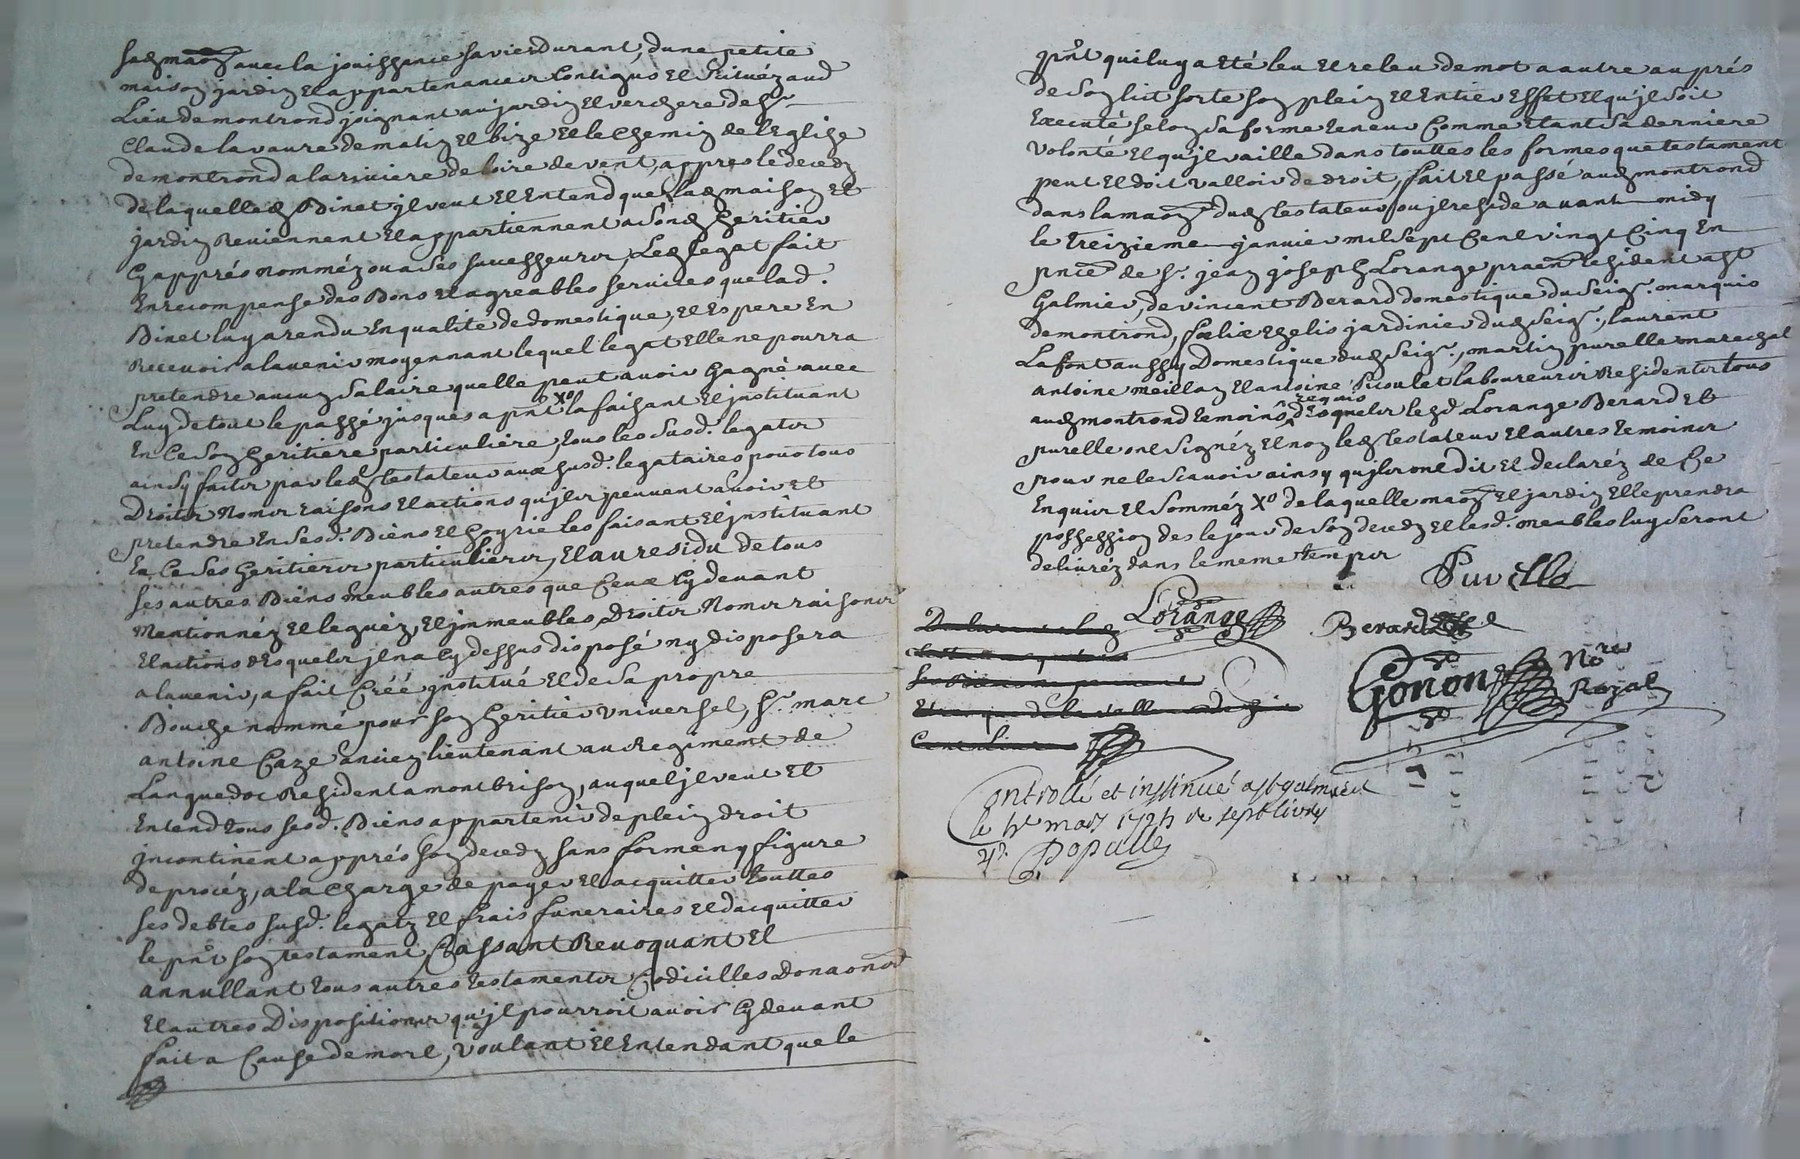 sad maon avec la jouissance sa vie durant, dune petite
maison jardin et appartenances contigus et scituéz aud
Lieu de montrond joignant au jardin et verchere de sr
Claude lavaure de matin et bize et le chemin de l'Eglise
de montrond a la riviere de loire de vent, apprés le deced
de laquelle d Binet jl veut et Entend que lad maison et
jardin Reviennent et appartiennent a sond heritier
Cy apprés nomméz ou a ses successeurs, Led legat fait
En recompense des Bons et agreables services que lad.
Binet luy a rendu En qualité de domestique, et Espere En
Recevoir a lavenir moyennant lequel legat Elle ne pourra
pretendre aucun salaire quelle peut avoir Gagné avec
Luy de tout le passé jusques a pnt Xo la faisant et jnstituant
En Ce son heritiere particuliere, tous les susd. legats
ainsy faits par led testateur aux susd. legataires pour tous
Droits Noms raisons et actions qu'jls peuvent avoir et
pretendre En sesd. Biens et hoyrie les faisant et jnstituant
En Ce ses heritiers particuliers, Et au residu de tous
ses autres Biens meubles autres que Ceux Cy devant
Mentionnéz et leguéz, et jmmeubles Droits Noms raisons
et actions desquels jl na Cy dessus disposé ny disposera
a lavenir, a fait Créé jnstitué et de sa propre
Bouche nommé pour son heritier Universel, sr. marc
antoine Caze ancien lieutenant au Regiment de
Languedoc Resident a montbrison, auquel jl veut et
Entend tous sesd. Biens appartenir de plein droit
jncontinent apprés son deced sans forme ny figure
de procéz, a la charge de payer et acquitter touttes
ses debtes susd. legatz et frais funeraires et dacquitter
le pnt son testament, Cassant Revoquant et
annullant tous autres testaments Codicilles Donaons
et autres Dispositions qu'jl pourroit avoir Cy devant
fait a Cause de mort, voulant et Entendant que le
pnt qui luy a eté leu et releu de mot a autre au prés
de son lict sorte son plein et Entier Effet et qu'jl soit
Executé selon sa forme teneur Comme Etant sa derniere
volonté et qu'jl vaille dans touttes les formes que testament
peut et doit valloir de droit, fait et passé aud montrond
dans la maon dud testateur ou jl reside avant midy
le treizieme janvier mil sept Cent vingt Cinq En
pnce de sr. jean joseph Lorange praen resident a st
Galmier, de vincent Berard domestique du seigr. marquis
de montrond, fœlix Ezelis jardinier dud seigr., laurent
Lafont aussy Domestique dud seigr., martin purelle marechal
antoine meillan et antoine sicoulet laboureurs Residents tous
aud montrond temoins requis desquels lesd Lorange Berard et
purelle ont signéz et non led testateur et autres temoins
pour ne le scavoir ainsy qu'jls ont dit et declaréz de Ce
Enquis et somméz Xo de laquelle maon et jardin elle prendra
possession des le jour de son deced et lesd. meubles luy seront
delivréz dans le meme temps
Purelle
Lorange
Berard
Gonon Nore
Royal
Controllé et insinué a st galmier
le mars 1725 Re sept livres
4 d.
Populle